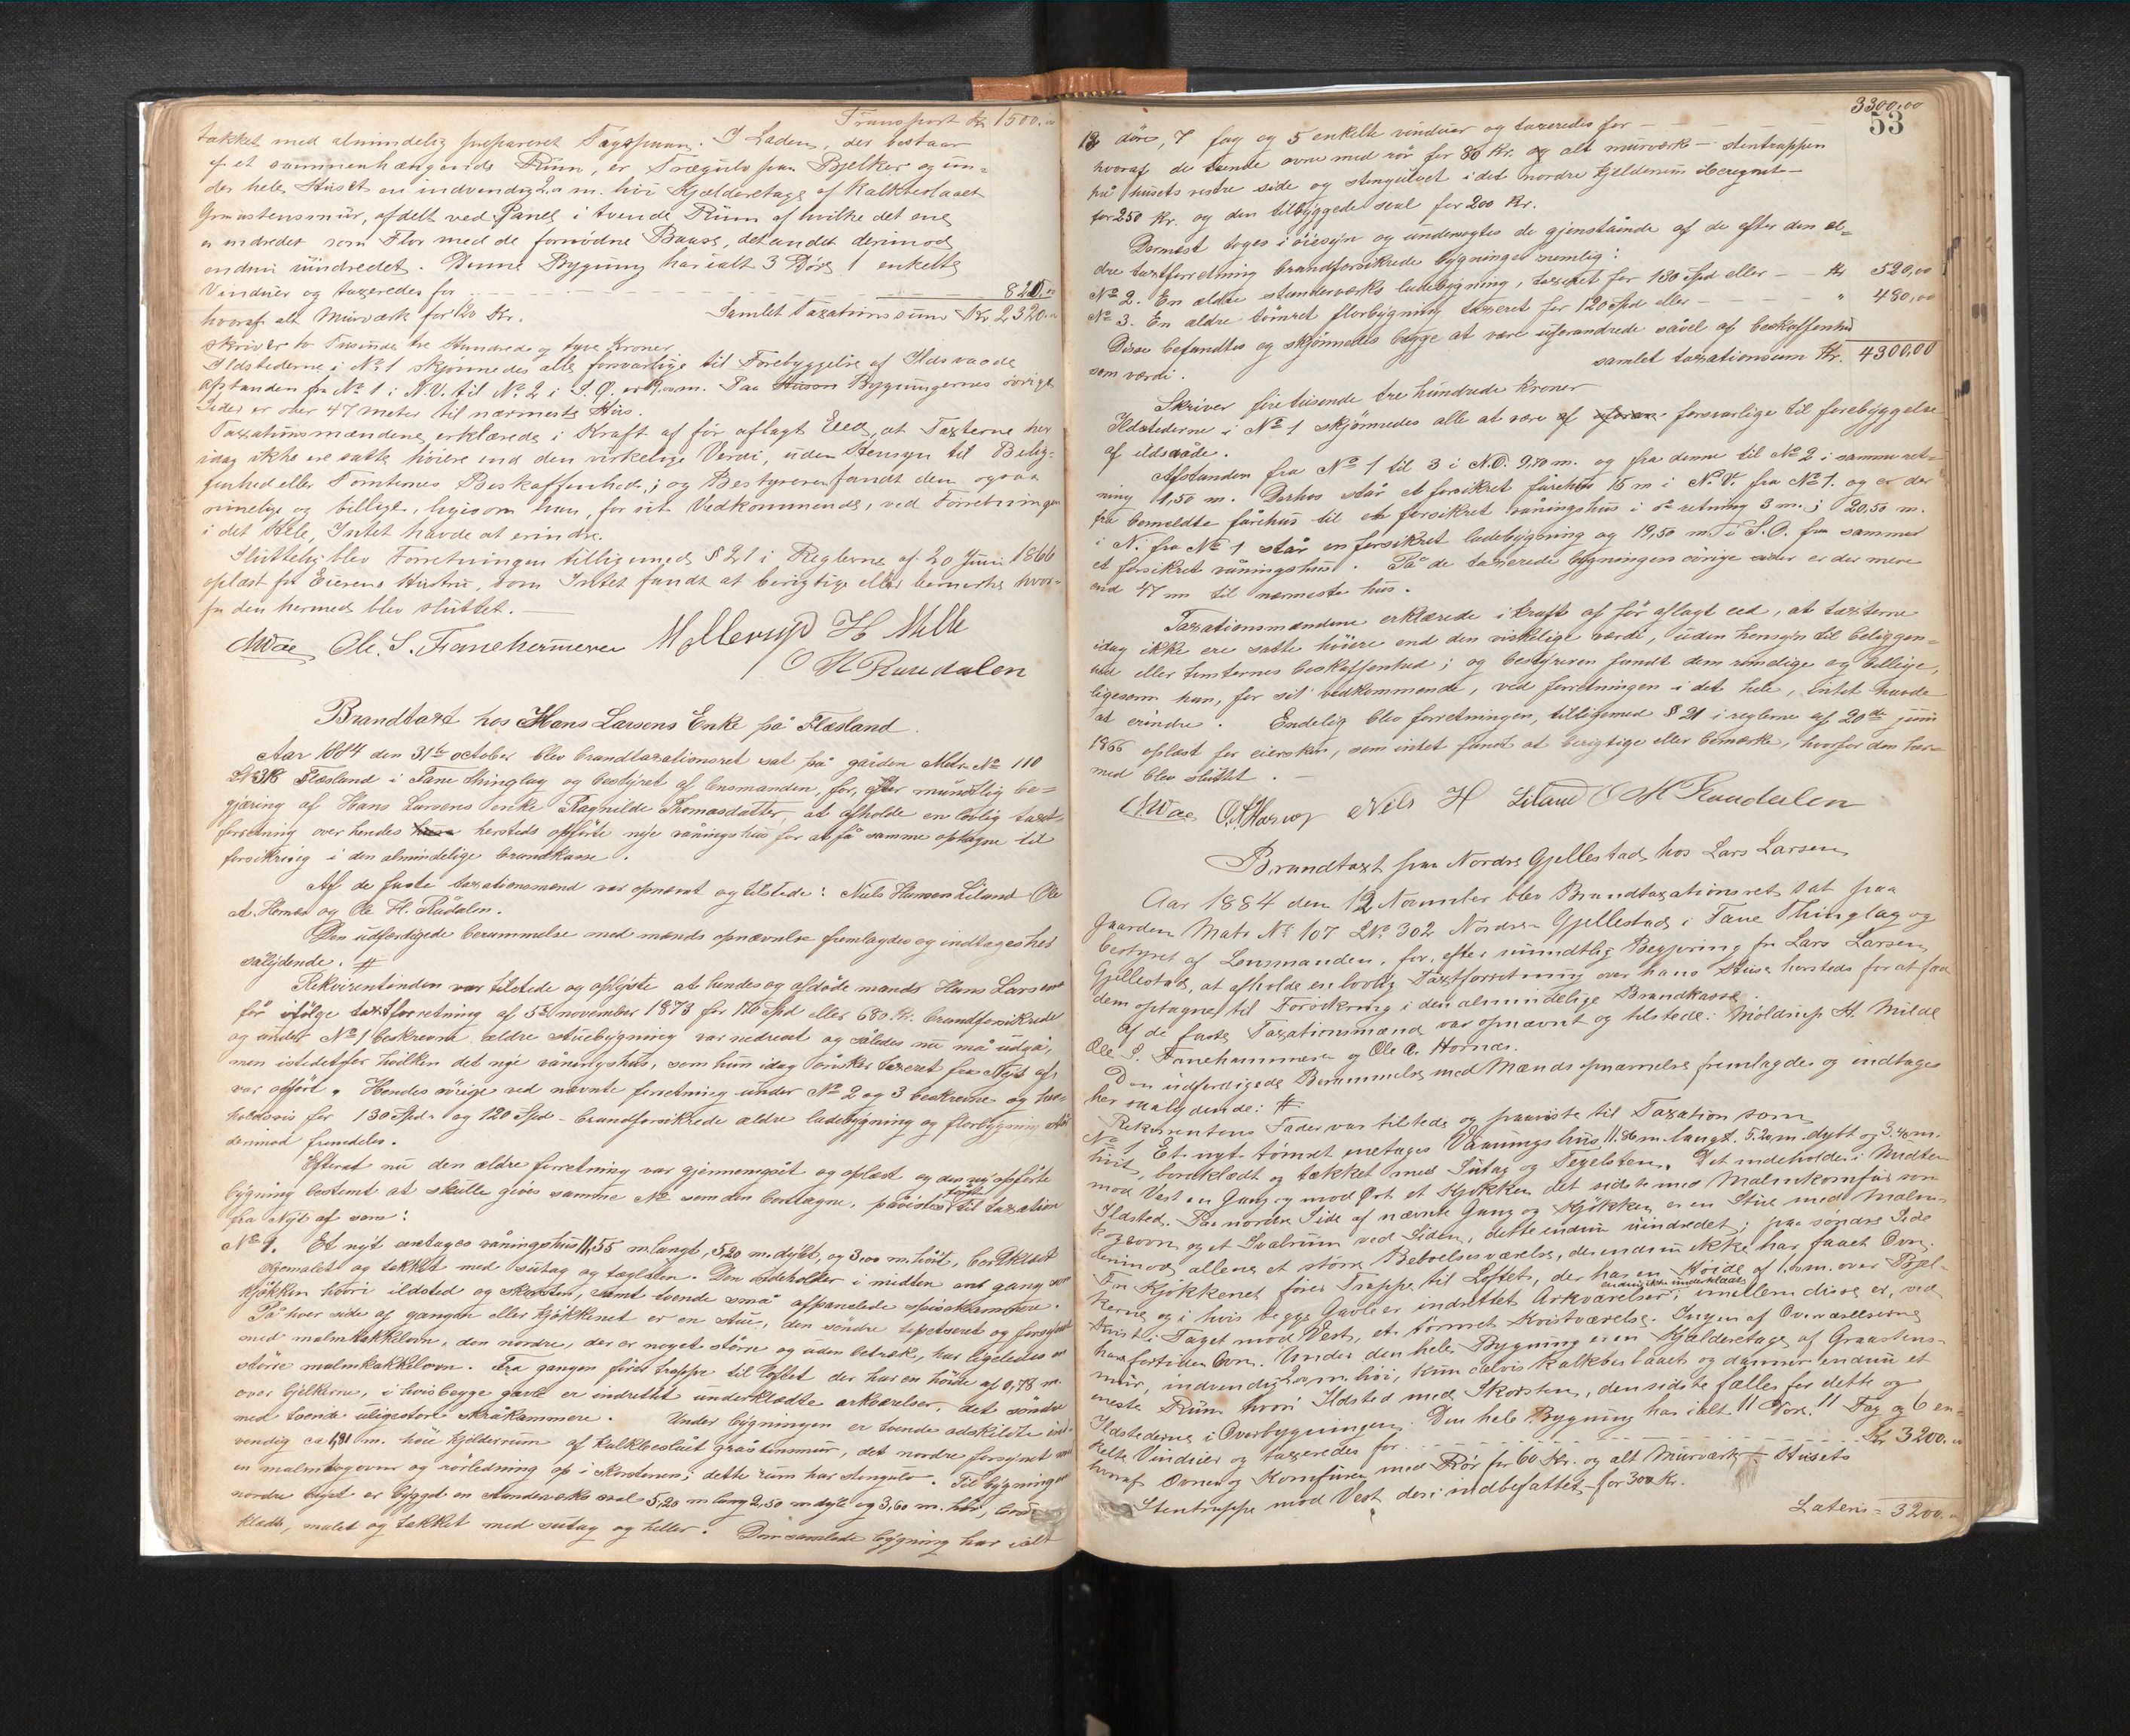 Transport Kr 1500.00
takket med almindelig præpareret Tagspaan. I Laden, der bestaar
af et sammenhængende Rum, er Trægulv paa Bjelker og un-
der hele Huset en indvendig 2.0 m. høi Kjælderetage af Kalkbeslaaet
Graastensmur, afdelt ved Panel i tvende Rum af hvilke det ene
er indredet som Flor med de fornødne Baase, det andet derimod
endnu uindredet. Denne Bygning har ialt 3 Døre 1 enkelte
Vinduer og taxeredes for 820.00
hvoraf alt Murværk for 120 Kr. Samlet Taxationssum Kr 2320.00
skriver to Tusinde tre Hundrede og tyve Kroner
Ildstederne i No 1 skjønnedes alle forsvarlige til Forebyggelse af Ildsvaade
Afstanden fra No 1 i N.V. til No 2 i S.O. er m. Paa Bygningernes øvrige
Sider er over 47 meter til nærmeste Hus.
Taxationsmændene erklærede i Kraft af før aflagt Eed, at Taxterne her
idag ikke ere satte høiere end den virkelige Verdi, uden Hensyn til Belig-
genhed eller Tomternes Beskaffenhed; og Bestyreren fandt dem ogsaa
rimelige og billige, ligesom han, for sit Vedkommende, ved Forretningen
i det Hele, Intet havde at erindre.
Sluttelig blev Forretningen tilligemed § 21 i Reglerne af 20 Juni 1866
oplæst for Eierens Hustru, som Intet fandt at berigtige eller bemærke hvor-
for den hermed blev sluttet.
Ole. S. Fanehammeren Møllerup H Milde
O H Raadalen
Brandtaxt hos Hans Larsens Enke på Flæsland.
Aar 1884 den 31te october blev brandtaxationsret sat på gården Mtr. No 110
LNo 318 Flæsland i Fane thinglag og bestyret af lensmanden, for, efter mundtlig be-
gjæring af Hans Larsens enke Ragnilde Thomasdatter, at afholde en lovlig taxt-
forretning over hendes hersteds opførte nye våningshus for at få samme optagne til
forsikring i den almindelige brandkasse.
Af de faste taxationsmænd var opnævnt og tilstede: Niels Hansen Liland Ole
A. Hornæs og Ole H. Rådalen.
Den udfærdigede berammelse med mænds opnævnelse fremlagdes og indtages her
sålydende. #
Rekvirentinden var tilstede og oplyste at hendes og afdøde mands Hans Larsens
før ifølge taxtforretning af 5te november 1873 for 170 Spd eller 680. Kr. brandforsikrede
og under No 1 beskrevne ældre stuebygning var nedrevet og således nu må udgå,
men istedetfor hvilken det nye våningshus, som hun idag ønsker taxeret fra Nyt af,
var opført. Hendes øvrige ved nævnte forretning under No 2 og 3 beskrevne og hen-
holdsvis for 130 Spd og 120 Spd brandforsikrede ældre ladebygning og florbygning står
derimod fremdeles.
Efterat nu den ældre forretning var gjennemgået og oplæst og den ny opførte
bygning bestemt at skulle gives samme No som den borttagne, påvistes til taxation
fra Nyt af som:
No 1. Et nyt enetages våningshus 11,55 m. langt, 5,20 m. dybt, og 3,00 m. høit, bordklædt
og malet og tækket med sutag og teglsten. Den indeholder i midten en gang og
kjøkken hvori ildsted og skorsten, samt tvende små afpanelede spisekammere.
På hver side af gangen eller kjøkkenet er en stue, den søndre tapetseret og forsynet
med malmkakkelovn, den nordre, der er noget større og uden betræk, har ligeledes en
større malmkakkelovn. Fra gangen fører trappe til loftet der har en høide af 0,78 m.
over bjelkerne, i hvis begge gavle er indrettet underklædte arkværelser, det søndre
med tvende uligestore skråkammere. Under bygningen er tvende adskildte ind-
vendig ca 1,81 m. høie kjelderrum af kalkbeslået gråstensmur, det nordre forsynet med
en malmkogeovn og rørledning op i skorstenen; dette rum har stengulv. Til bygningens
nordre side er bygget en stenderværks sval 5,20 m lang 2,50 m dyb og 3,60 m. høi, bord-
klædt, malet og tækket med sutag og heller. Den samlede bygning har ialt
3300.00
53
12 døre, 7 fag og 5 enkelte vinduer og taxeredes for
hvoraf de tvende ovne med rør for 80 Kr. og alt murværk – stentrappen
på husets vestre side og stengulvet i det nordre kjelderrum iberegnet –
for 250 Kr. og den tilbyggede sval for 200 Kr.
Dernæst toges i øiesyn og undersøgtes de gjenstående af de efter den æl-
dre taxtforretning brandforsikrede bygninger nemlig:
No 2. En ældre stenderværks ladebygning, taxeret for 130 Spd eller – Kr 520,00
No 3. En ældre tømret florbygning taxeret for 120 Spd eller – " 480,00
Disse befandtes og skjønnedes begge at være uforandrede såvel af beskaffenhed
som værdi. samlet taxationssum Kr. 4300.00
Skriver firetusende trehundrede kroner
Ildstederne i No 1 skjønnedes alle at være forsvarlige til forebyggelse
af ildsvåde.
Afstanden fra No 1 til 3 i N.O. 9,70 m. og fra denne til No 2 i samme ret-
ning 11,50 m. Derhos står et forsikret fårehus 15 m i N.V. fra No 1. og er der
fra bemeldte fårehus til et forsikret våningshus i s retning 3 m.; 20,50 m.
i N. fra No 1 står en forsikret ladebygning og 19,50 m i S.O. fra samme
et forsikret våningshus. På de taxerede bygningers øvrige sider er der mere
end 47 m til nærmeste hus.
Taxationsmændene erklærede i kraft af før aflagt eed, at taxterne
idag ikke ere satte høiere end den virkelige værdi, uden hensyn til beliggen-
hed eller tomternes beskaffenhed; og bestyreren fandt dem rimelige og billige,
ligesom han, for sit vedkommende, ved forretningen i det hele, intet havde
at erindre. Endelig blev forretningen, tilligemed § 21 i reglerne af 20de juni
1866 oplæst for eiersken, som intet fandt at berigtige eller bemærke, hvorfor den her-
med blev sluttet.
Nils H Liland O H Raadalen
Brandtaxt paa Nordre Gjellestad hos Lars Larsen
Aar 1884 den 12 November blev Brandtaxationsret sat paa
Gaarden Matr No 107 LNo 302 Nordre Gjellestad i Fane Thinglag og
bestyret af Lensmanden, for, efter mundtlig Begjæring fra Lars Larsen
Gjellestad, at afholde en lovlig Taxtforretning over hans Huse hersteds for at faa
dem optagne til Forsikring i den almindelige Brandkasse.
Af de faste Taxationsmænd var opnævnt og tilstede: Møldrup H. Milde
Ole S. Fanehammeren og Ole A. Hornæs.
Den udfærdigede Berammelse med Mænds opnævnelse fremlagdes og indtages
her saalydende: #
Rekvirentens Fader var tilstede og paaviste til Taxation som
No 1 Et nyt tømret enetages Vaaningshus 11.86 m. langt. 5.20 m. dybt og 3.40 m.
høit, bordklædt og tækket med Sutag og Tegelsten. Det indeholder i Midten
mod Vest en Gang og mod Øst et Kjøkken det sidste med Malmkomfur som
Ildsted. Paa nordre Side af nævnte Gang og Kjøkken er en Stue med Malm-
kogeovn og et Svalrum ved Siden, dette endnu uindredet; paa søndre Side
derimod allene et større Beboelsesværelse, der endnu ikke har faaet Ovn.
Fra Kjøkkenet fører Trappe til Loftet, der har en Høide af 1.00 m. over Bjel-
kerne og i hvis begge Gavle er indrettet Arkværelser, endnu ikke underklædte imellem disse er, ved
Kvist i Taget mod Vest, et tømret Kvistværelse. Ingen af Overværelserne
har fortiden Ovn. Under den hele Bygning er en Kjælderetage af Graastens-
mur, indvendig 2.0 m. høi, kun delvis kalkbeslaaet og danner endnu et
eneste Rum hvori Ildsted med Skorsten, den sidste fælles for dette og
Ildstederne i Overbygningen. Den hele Bygning har ialt 11 Døre. 11 Fag og 6 en-
kelte Vinduer og taxeredes for Kr 3200.00
hvoraf Ovne og Komfuren med Rør for 60 Kr. og alt Murværk – Husets
Stentrappe mod Vest deri indbefattet – for 300 Kr.
Lateris 3200.00